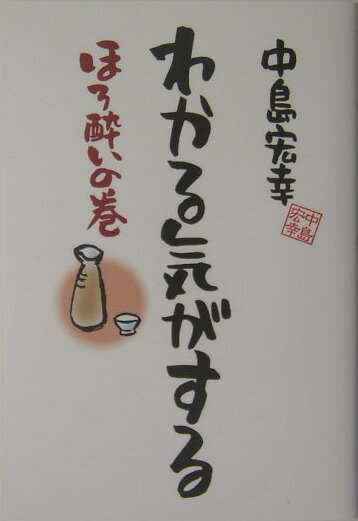 中島宏幸
中島
宏幸
わかる気がする
ほろ酔いの巻